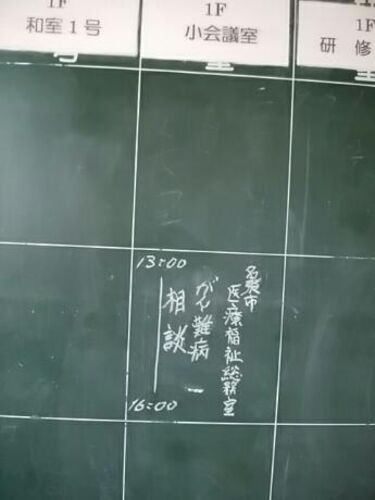 1F
和室1号
1F
小会議室
1F
研修
号
室
室
13:00
16:00
名張市
医療福祉総務室
がん難病
相談